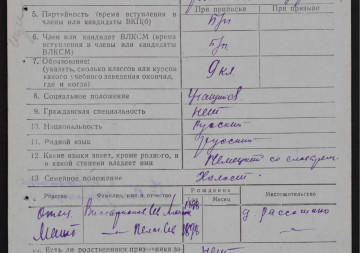 При приписке
При призыве
5. Партийность (время вступления в
члены или кандидаты ВКП(б)
Б/п
6. Член или кандидат ВЛКСМ (время
вступления в члены или кандидаты
ВЛКСМ)
Б/п
7. Образование:
(указать, сколько классов или курсов
какого учебного заведения окончил,
где и когда)
9 кл
8. Социальное положение
Учащийся
9. Гражданская специальность
Нет
10. Национальность
Русский
11. Родной язык
Русский
12. Какие языки знает, кроме родного, и
в какой степени владеет ими
Немецкий со словарем
13. Семейное положение
Холост
Родство
Фамилия, имя и отчество
Рождения
Месяц
Местожительство
Отец
Мать
1898
д.
Есть ли родственники
нет